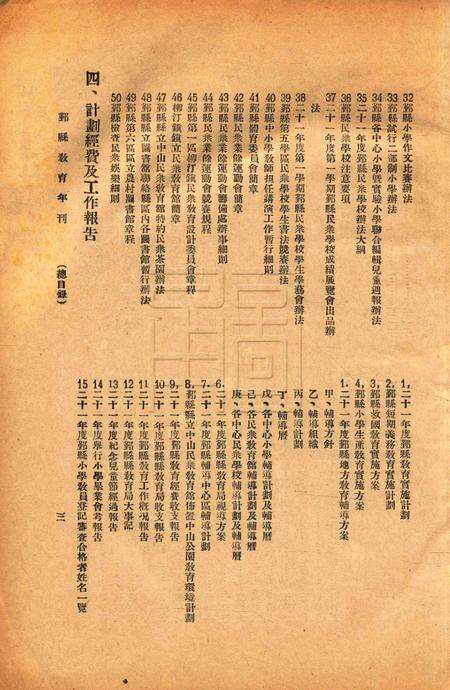 32鄞縣小學作文比賽辦法
33鄞縣試行二部制小學辦法
34鄞縣各中心小學暨實驗小學聯合編輯兒童週報辦法
35二十一年度鄞縣民衆學校辦法大綱
36鄞縣民衆學校注意要項
37二十一年度第一學期鄞縣民衆學校成績展覽會出品辦
法
38二十一年度第一學期鄞縣民衆學校學生學藝會辦法
39鄞縣第五學區民衆學校學生書法競賽辦法
40鄞縣中小學敎師担任講演工作暫行細則
41鄞縣體育委員會簡章
42鄞縣民衆業餘運動會簡章
43鄞縣民衆業餘運動會籌備處辦事細則
44鄞縣民衆業餘運動會競賽規程
45鄞縣第一區柳汀鎭民衆敎育設計委員會章程
46柳汀鎭鎭立民衆敎育館簡章
47鄞縣縣立中山民衆敎育館特約民衆茶園辦法
48鄞縣縣立圖書館聯絡縣區內各圖書館暫行辦法
49鄞縣第六區區立農村圖書館章程
50鄞縣檢查民衆娛樂細則
四、計劃經費及工作報告
1,二十一年度鄞縣敎育實施計劃
2,鄞縣短期義務敎育實施計劃
3,鄞縣救國敎育實施方案
4,鄞縣小學生產敎育實施方案
1.二十一年度鄞縣地方敎育輔導方案
甲、輔導方針
乙、輔導組織
丙、輔導計劃
丁、輔導曆
戊、各中心小學輔導計劃及輔導曆
己、各民衆敎育館輔導計劃及輔導曆
庚、各中心民衆學校輔導計劃及輔導曆
6.二十一年度鄞縣敎育局視導方案
7.二十一年度鄞縣輔導中心區輔導計劃
8.鄞縣縣立中山民衆敎育館佈置中山公園敎育環境計劃
9.二十一年度鄞縣敎育經費收支報告
10二十一年度鄞縣縣敎育局收支報告
11二十一年度鄞縣敎育工作概况報告
12二十一年度鄞縣敎育局大事記
13二十一年度紀念兒童節經過報告
14二十一年度舉行小學畢業會考報告
15二十一年度鄞縣小學敎員登記審查合格者姓名一覽
鄞縣敎育年刊
(總目錄)
三